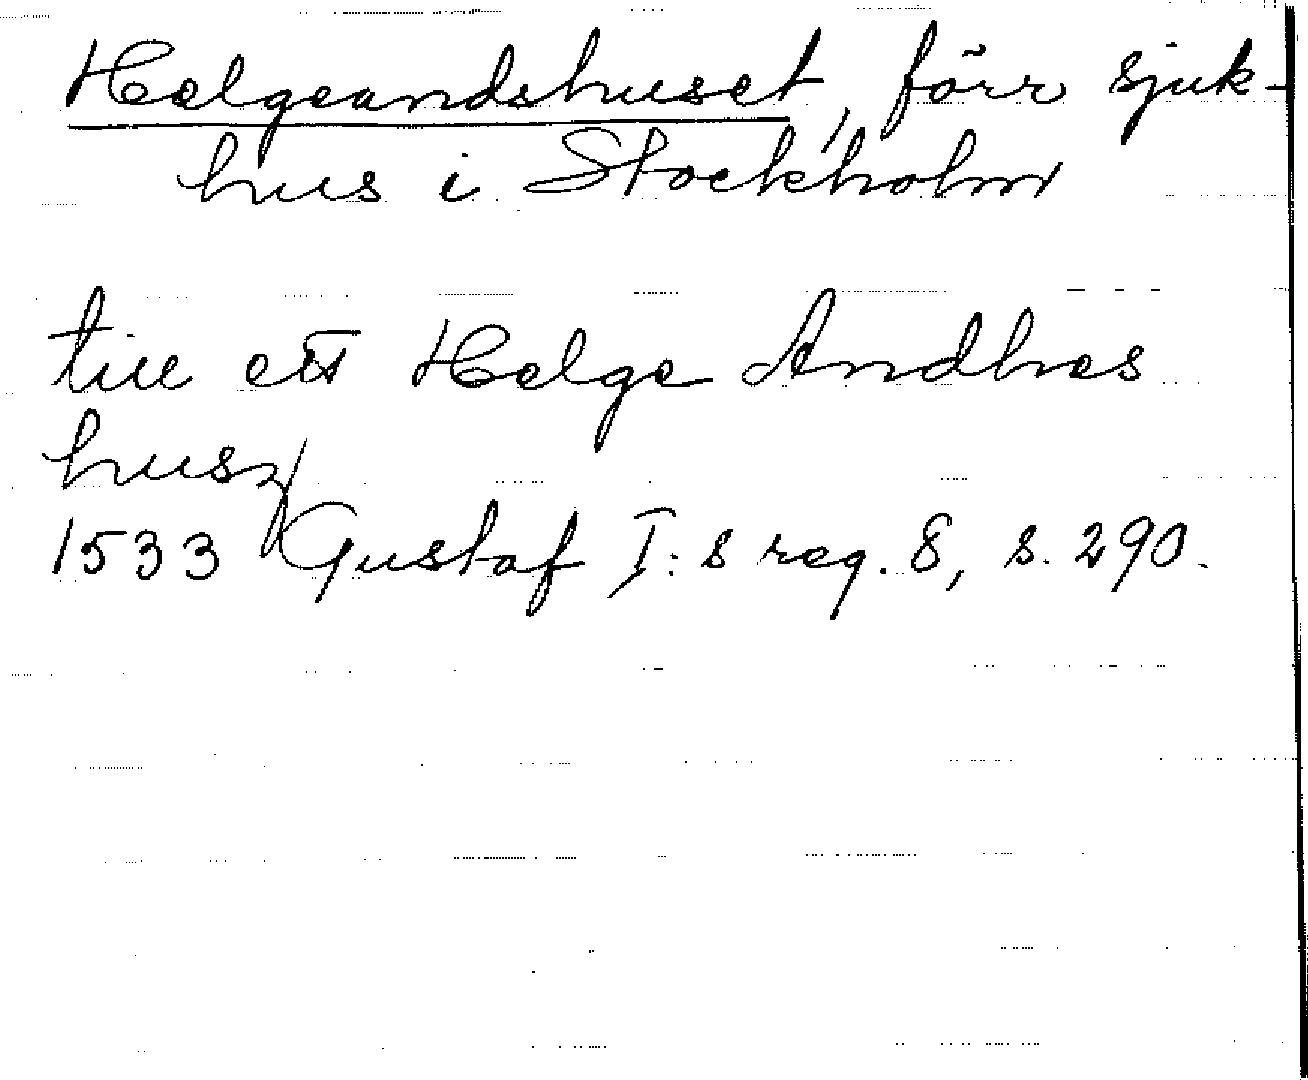 Helgeandshuset, förr sjuk-
hus i Stockholm
till ett Helge Andhes
husz
1533 Gustaf I:s reg. 8, s. 290.